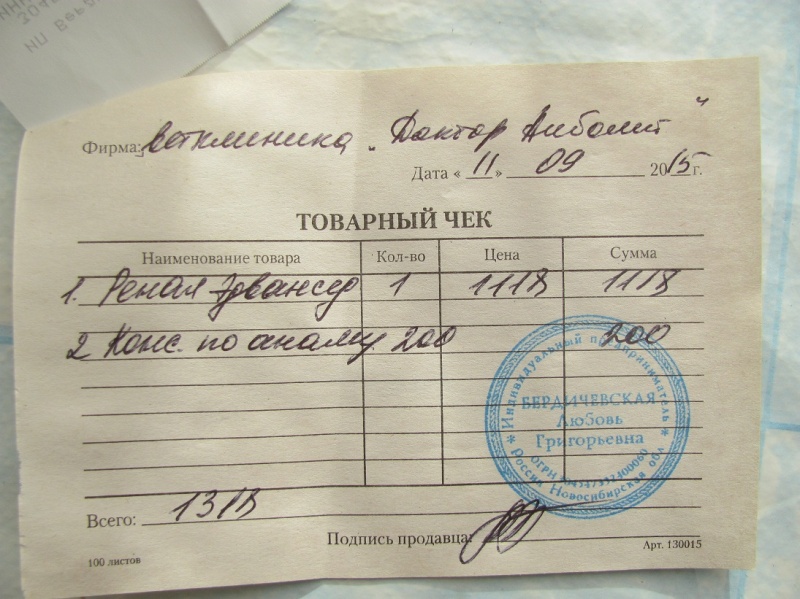 Фирма: Ветклиника „Доктор Айболит"
Дата «11» 09 2015г.
ТОВАРНЫЙ ЧЕК
Наименование товара Кол-во Цена Сумма
1. Ренал Эдвансед 1 1118 1118
2 Конс. по анализу 200 200
Индивидуальный предприниматель
БЕРДИЧЕВСКАЯ
Любовь
Григорьевна
ОГРН
Россия Новосибирская обл
Всего: 1318
Подпись продавца:
100 листов
Арт. 130015